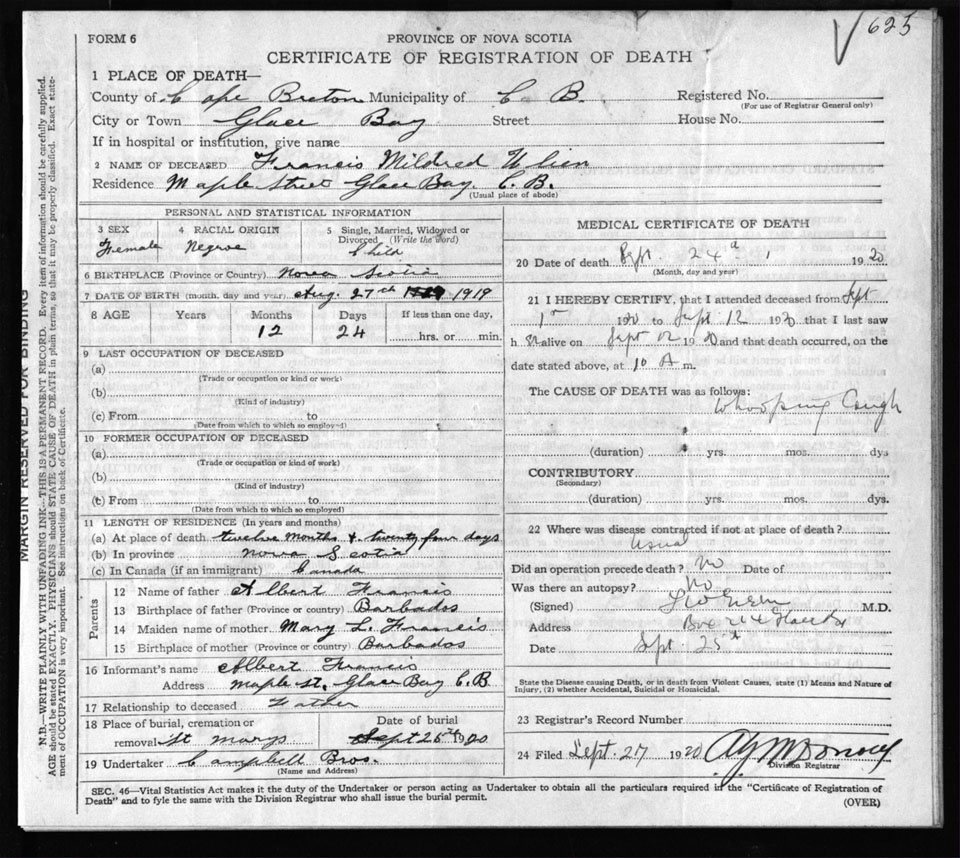 625
FORM 6
PROVINCE OF NOVA SCOTIA
CERTIFICATE OF REGISTRATION OF DEATH
1 PLACE OF DEATH—
County of Cape Breton Municipality of C B. Registered No.
(For use of Registrar General only)
City or Town Glace Bay Street House No.
If in hospital or institution, give name
2 NAME OF DECEASED Francis Mildred
Residence Maple Street Glace Bay. C.B.
(Usual place of abode)
PERSONAL AND STATISTICAL INFORMATION
3 SEX Female
4 RACIAL ORIGIN Negroe
5 Single, Married, Widowed or Divorced (Write the word) Child
6 BIRTHPLACE (Province or Country) Nova Scotia
7 DATE OF BIRTH (month, day and year) Aug. 27th 1919
8 AGE Years Months Days If less than one day,
12 24 hrs. or min.
9 LAST OCCUPATION OF DECEASED
(a)
(Trade or occupation or kind or work)
(b)
(Kind of industry)
(c) From to
(Date from which to so employed)
10 FORMER OCCUPATION OF DECEASED
(a)
(Trade or occupation or kind of work)
(b)
(Kind of industry)
(c) From to
(Date from which to which so employed)
11 LENGTH OF RESIDENCE (In years and months)
(a) At place of death twelve months & twenty four days
(b) In province Nova Scotia
(c) In Canada (if an immigrant) Canada
Parents
12 Name of father Albert Francis
13 Birthplace of father (Province or country) Barbados
14 Maiden name of mother Mary L. Francis
15 Birthplace of mother (Province or country) Barbados
16 Informant's name Albert Francis
Address Maple St. Glace Bay C.B
17 Relationship to deceased Father
18 Place of burial, cremation or removal St Marys
Date of burial Sept 26th 1920
19 Undertaker Campbell Bros.
(Name and Address)
MEDICAL CERTIFICATE OF DEATH
20 Date of death Sept. 24 1920
(Month, day and year)
21 I HEREBY CERTIFY, that I attended deceased from Sept
1 1920 to Sept 12 1920 that I last saw
h alive on Sept 12 1920 and that death occurred, on the
date stated above, at 10 A m.
The CAUSE OF DEATH was as follows:
Whooping Cough
(duration) yrs. mos. dys
CONTRIBUTORY
(Secondary)
(duration) yrs. mos. dys.
22 Where was disease contracted if not at place of death?
Usual
Did an operation precede death? No Date of
Was there an autopsy? No
(Signed) M.D.
Address Box
Date Sept. 25
State the Disease causing Death, or in death from Violent Causes, state (1) Means and Nature of
Injury, (2) whether Accidental, Suicidal or Homicidal.
23 Registrar's Record Number
24 Filed Sept 27 1920
Division Registrar
SEC. 46—Vital Statistics Act makes it the duty of the Undertaker or person acting as Undertaker to obtain all the particulars required in the "Certificate of Registration of
Death" and to fyle the same with the Division Registrar who shall issue the burial permit.
(OVER)
MARGIN RESERVED FOR BINDING
N.B.—WRITE PLAINLY WITH UNFADING INK—THIS IS A PERMANENT RECORD. Every item of information should be carefully supplied.
AGE should be stated EXACTLY. PHYSICIANS should STATE CAUSE OF DEATH in plain terms, so that it may be properly classified. Exact state-
ment of OCCUPATION is very important. See instructions on back of Certificate.